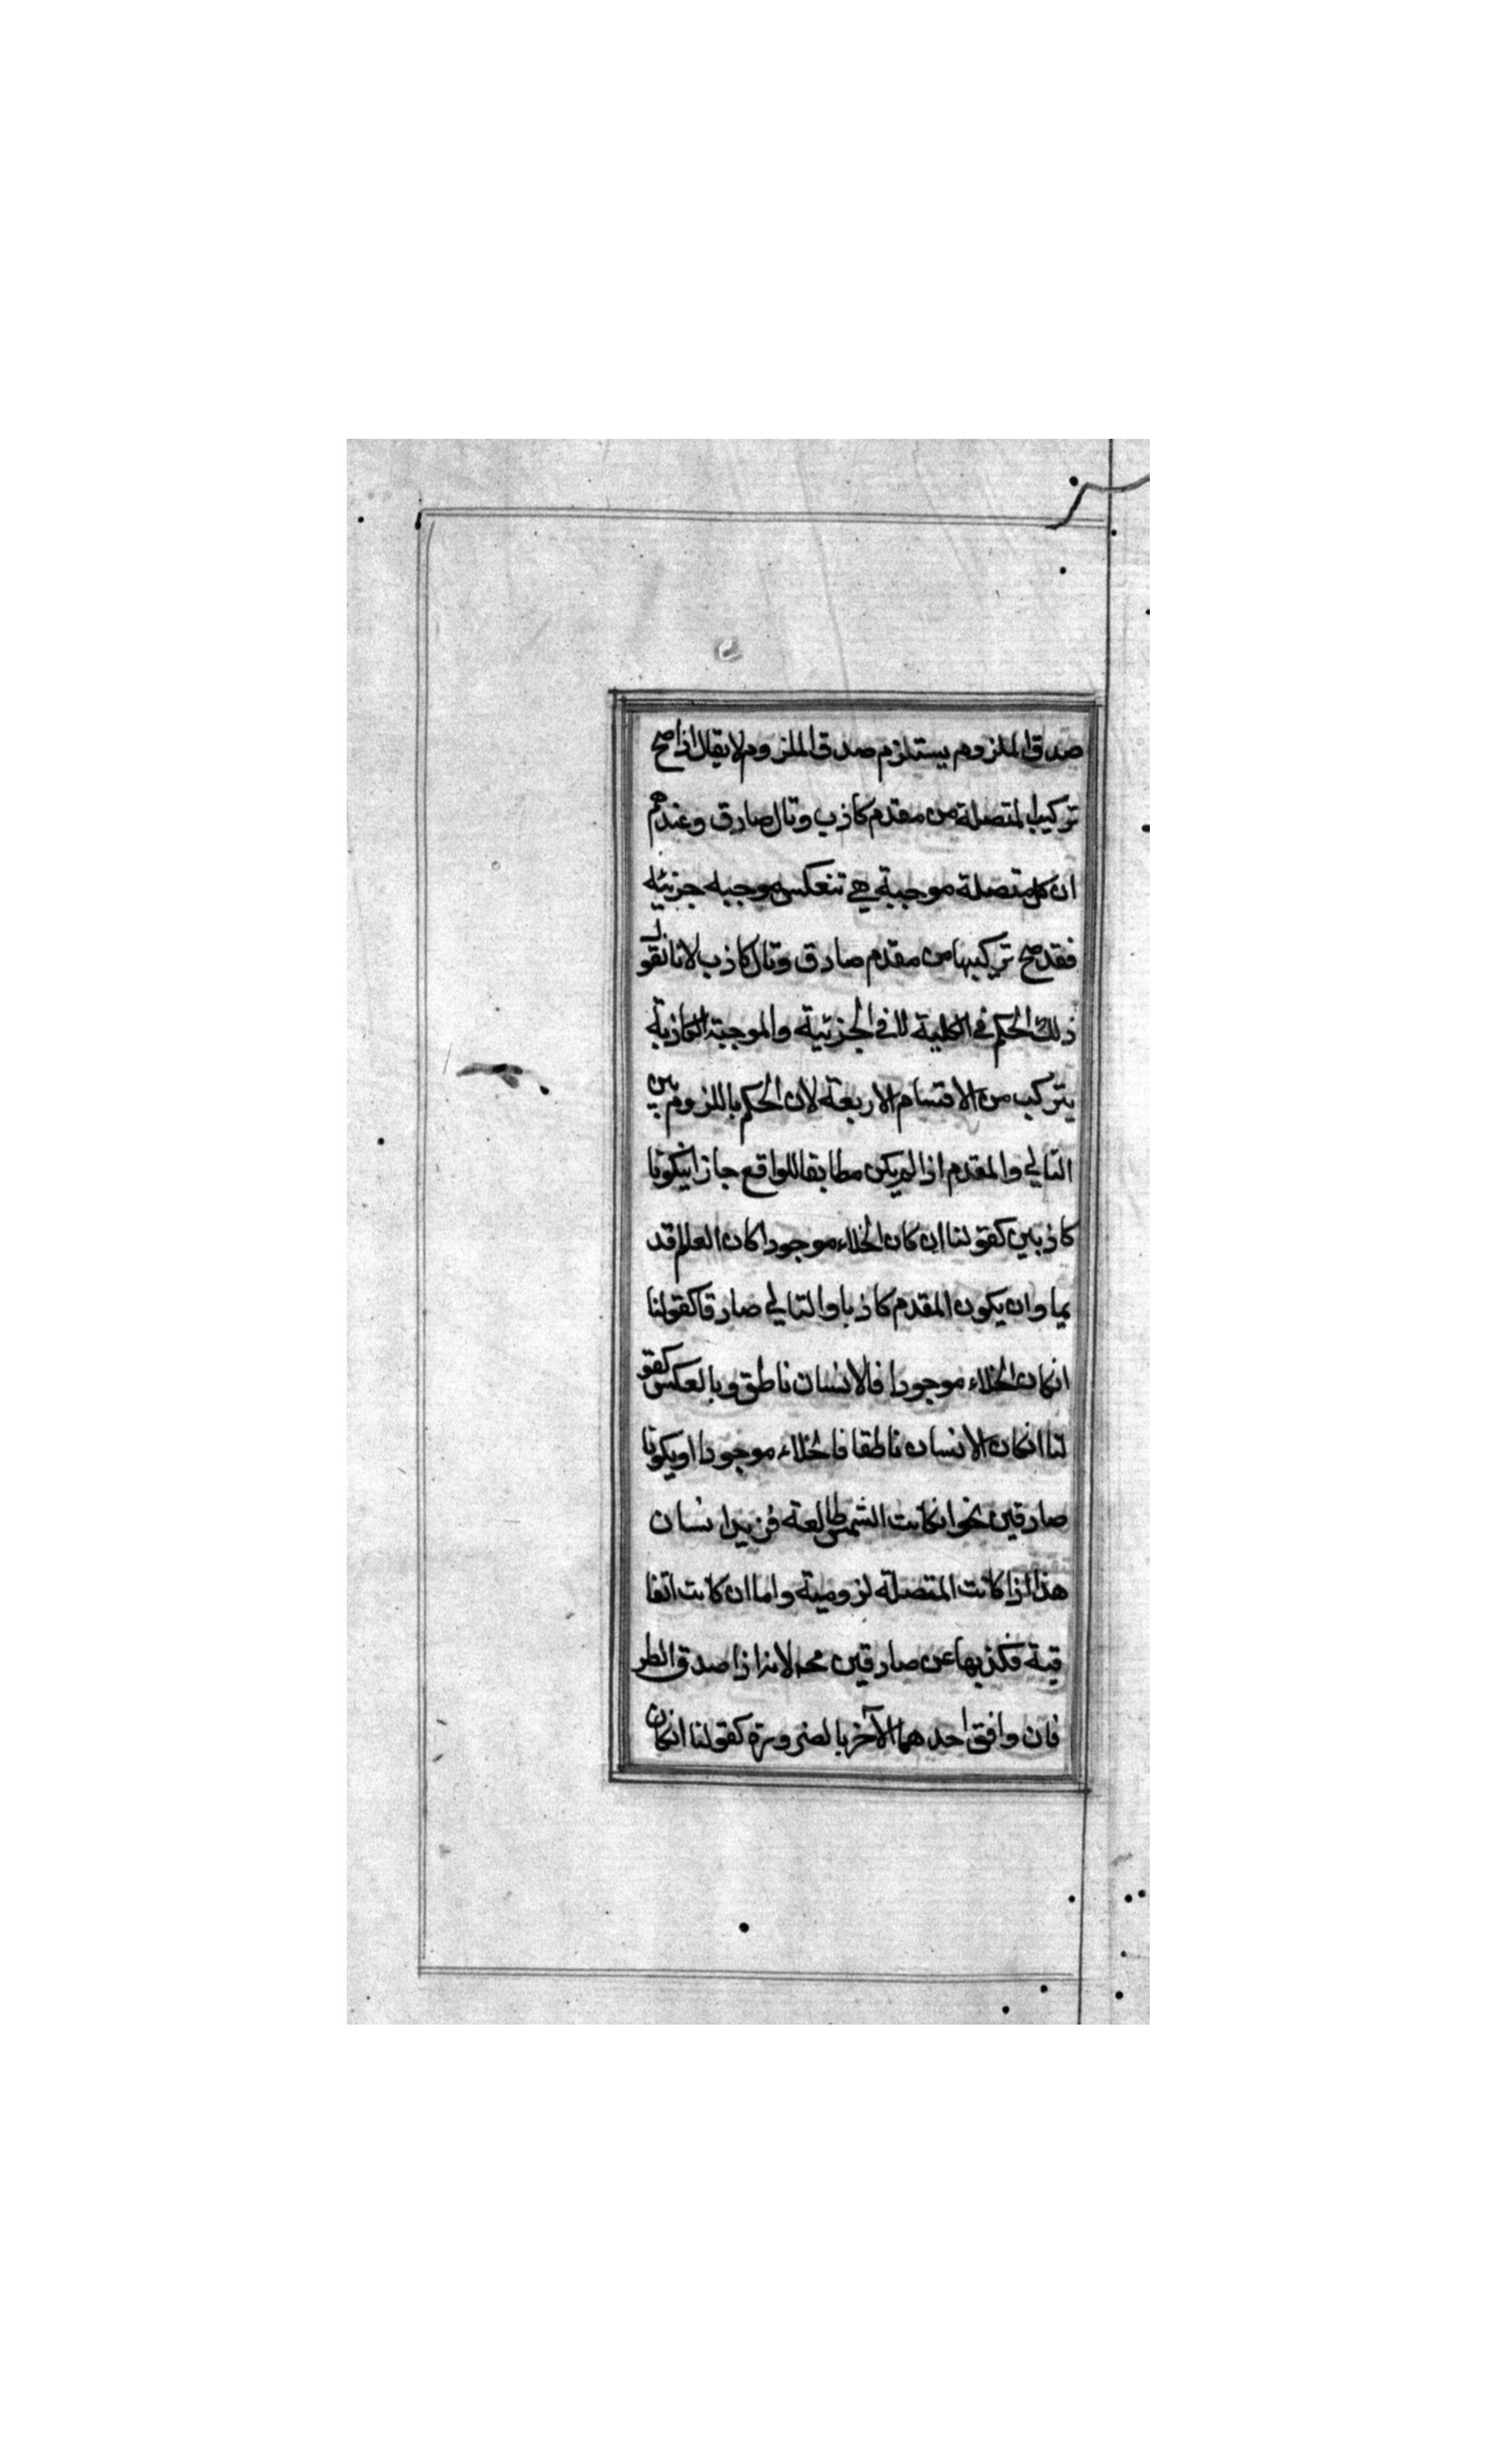 صدق الملزوم يستلزم صدق الملزوم لا يقال اذا صح
تركيب المتصلة من مقدم كاذب وتال صادق وعندهم
ان كل متصلة موجبة هي تنعكس موجبه جزئيه
فقد صح تركيبها من مقدم صادق وتال كاذب لانا نقول
ذلك الحكم في الكلية لا في الجزئية والموجبة الكاذبة
يتركب من الاقسام الاربعة لان الحكم باللزوم بين
التالي والمقدم اذا لم يكن مطابقا للواقع جاز ان يكونا
كاذبين كقولنا ان كان الخلاء موجودا كان العالم قد
يما وان يكون المقدم كاذبا والتالي صادقا كقولنا
انكان الخلاء موجودا فالانسان ناطق وبالعكس كقو
لنا انكان الانسان ناطقا فالخلاء موجودا او يكونا
صادقين نحو انكانت الشمس طالعة فزيد انسان
هذا اذا كانت المتصلة لزومية واما ان كانت اتفا
قية فكذبها عن صادقين محـ لانه اذا صدق الطر
فان وافق احدهما الآخر بالضرورة كقولنا انكان